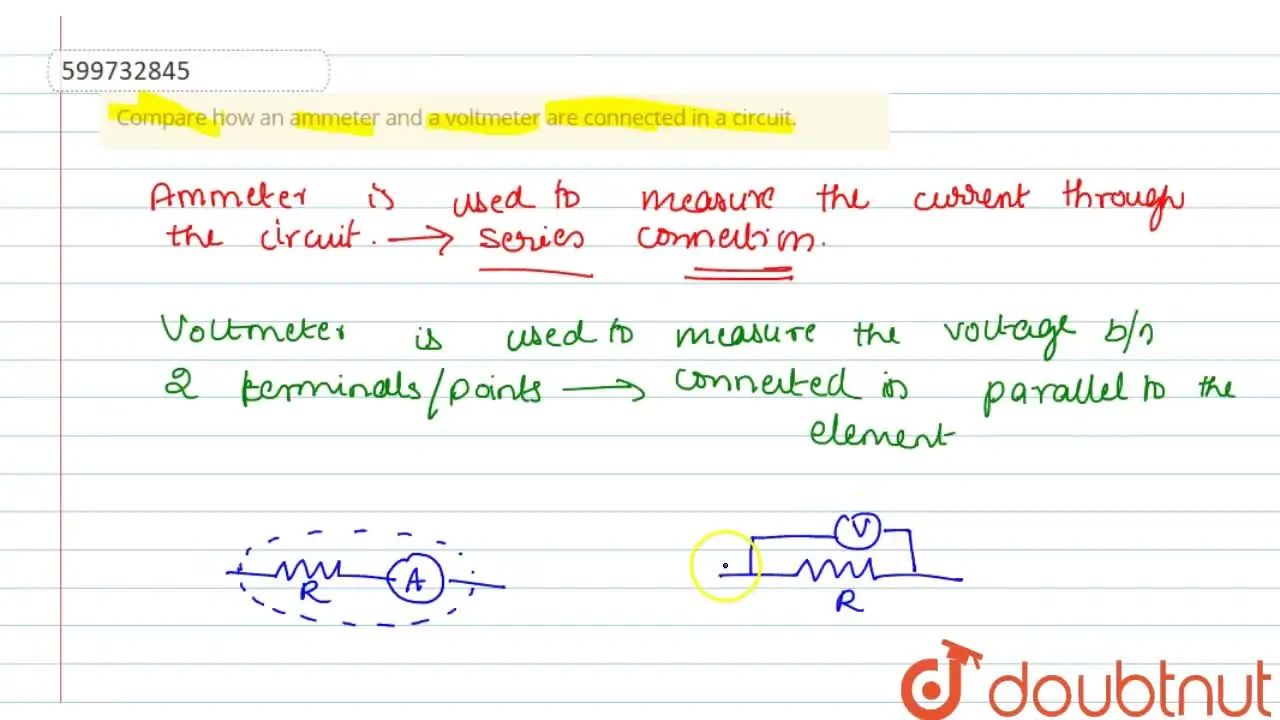 599732845
Compare how an ammeter and a voltmeter are connected in a circuit.
Ammeter is used to measure the current through
the circuit. → series connection.
Voltmeter is used to measure the voltage b/n
2 terminals/points → connected in parallel to the
element
R A
V
R
doubtnut